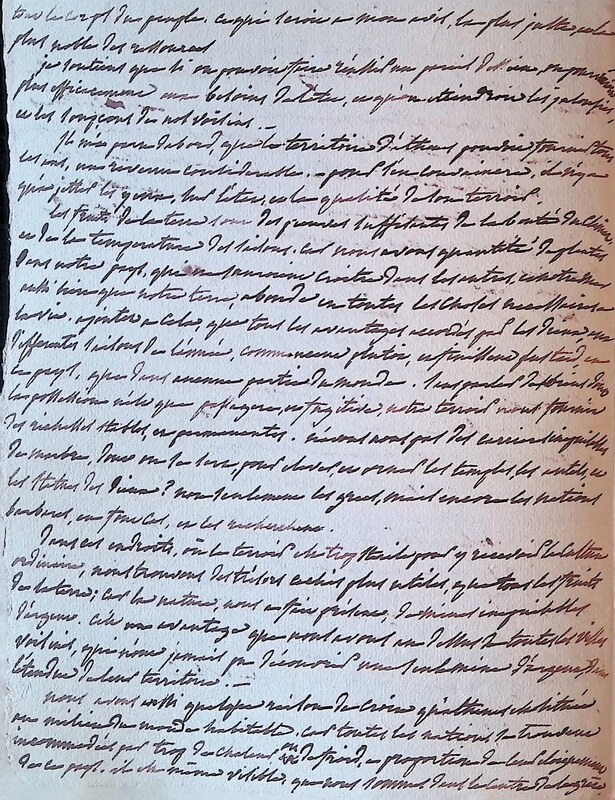 tout le corps du peuple. ce qui seroit a mon avis, la plus juste et la
plus noble des ressources
je soutiens que si on pouvoit faire réussir un pareil dessein, on pourvoiroit
plus efficacement aux besoins de l'état, et qu'on eteindroit les jalousies
et les soupçons de nos voisins. —
Il m'a paru dabord que le territoire d'athenes pouvoit fournir tous
les ans, un revenu considerable. pour s'en convaincre, il n'y a
qu'a jetter les yeux, sur l'état, et la qualité de son terroir.
les fruits de la terre sont des preuves suffisantes de la bonté du climat
et de la temperature des saisons. car nous avons quantité de plantes
dans notre pays, qui ne sauroient croitre dans les autres, et notre mer
aussi bien que notre terre, abonde en toutes les choses necessaires a
la vie. ajoutez a cela, que tous les avantages accordés par les dieux, aux
differentes saisons de l'année, commencent plutôt, et finissent plus tard, en
ce pays, que dans aucune partie du monde. Sans parler des biens dont
la possession n'est que passagere, et fugitive, notre terroir nous fournit
des richesses stables, et permanentes. n'avons nous pas des carrieres inepuisables
de marbre, dont on se sert, pour elever, et orner les temples, les autels et
les statues des dieux? non seulement les grecs, mais encore les nations
barbares, en font cas, et les recherchent.
Dans ces endroits, où le terroir est trop sterile pour y recevoir la culture
ordinaire, nous trouvons des trésors cachés plus utiles, que tous les fruits
de la terre; car la nature, nous a fait present, de mines inepuisables
d'argent. c'est un avantage que nous avons au dessus de toutes les villes
voisines, qui n'ont jamais pu découvrir une seule mine d'argent, dans
l'étendue de leur territoire. —
nous avons aussi quelque raison de croire qu'athenes est située
au milieu du monde habitable. car toutes les nations se trouvent
incommodées par trop de chaleur ou de froid, a proportion de leur eloignement
de ce pays. il est même visible, que nous sommes dans le centre de la grèce